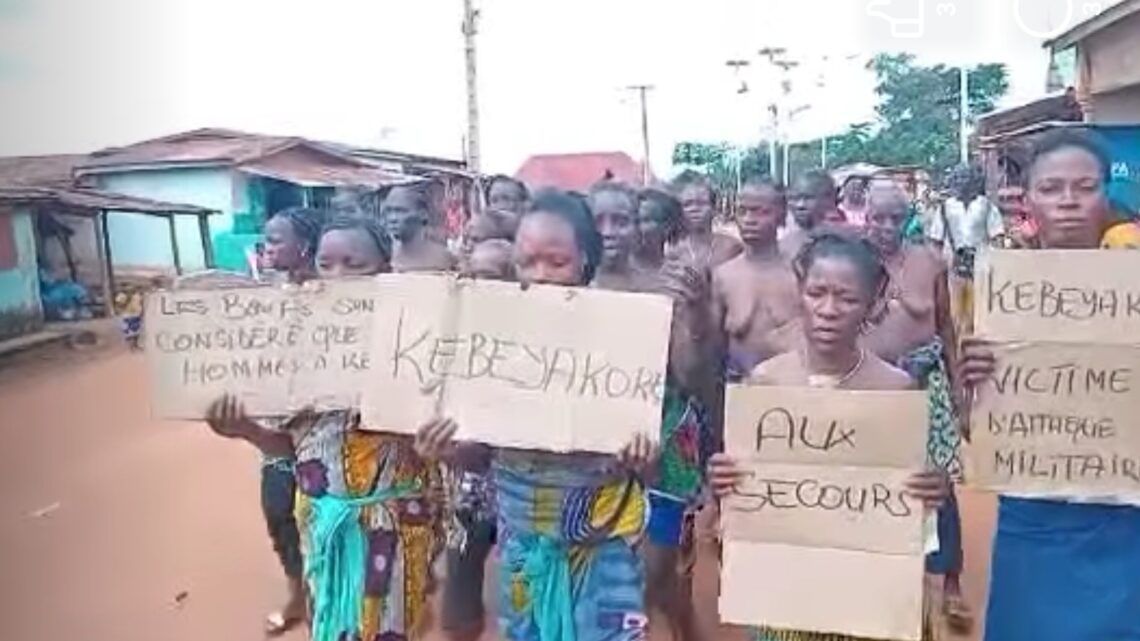 LES BŒUFS SON
CONSIDÉRÉ QUE
HOMMES À KE
KEBEYAKORE
AUX
SECOURS
KEBEYAK
VICTIME
D'ATTAQUE
MILITAIR
PA
3
3